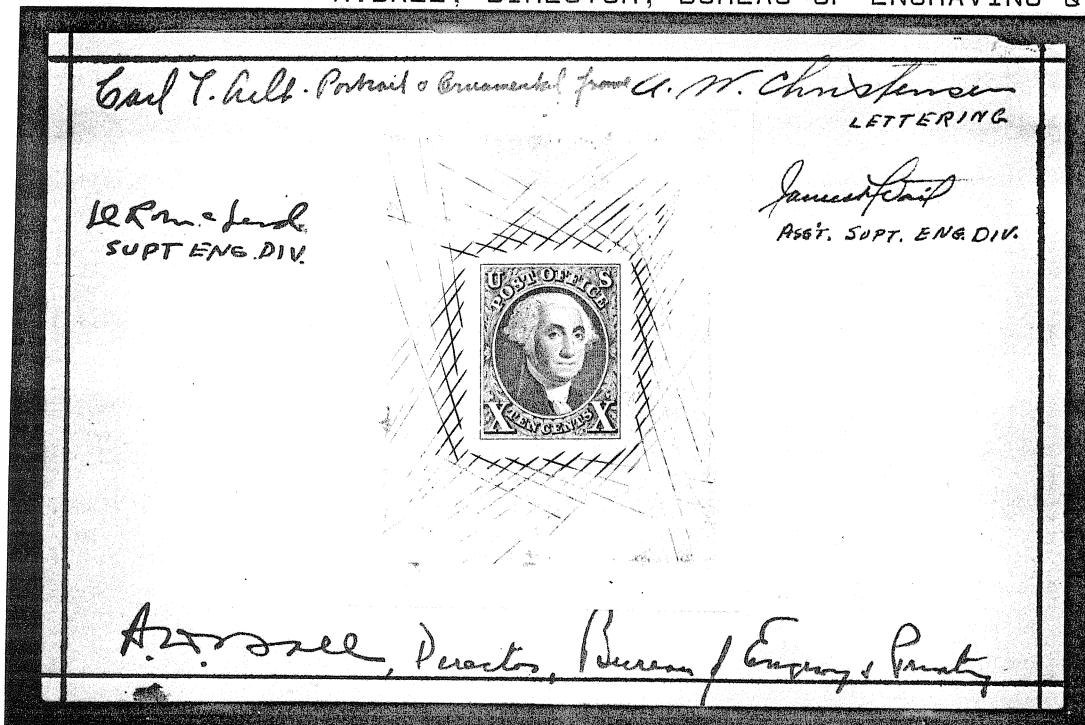 DIRECTOR, BUREAU OF ENGRAVING &
Carl T. Arlt. Portrait & Ornamental frame A. W. Christensen
LETTERING
SUPT ENG. DIV.
ASS'T. SUPT. ENG. DIV.
U S
POST OFFICE
X TEN CENTS X
A. W. Hall, Director, Bureau of Engraving & Printing